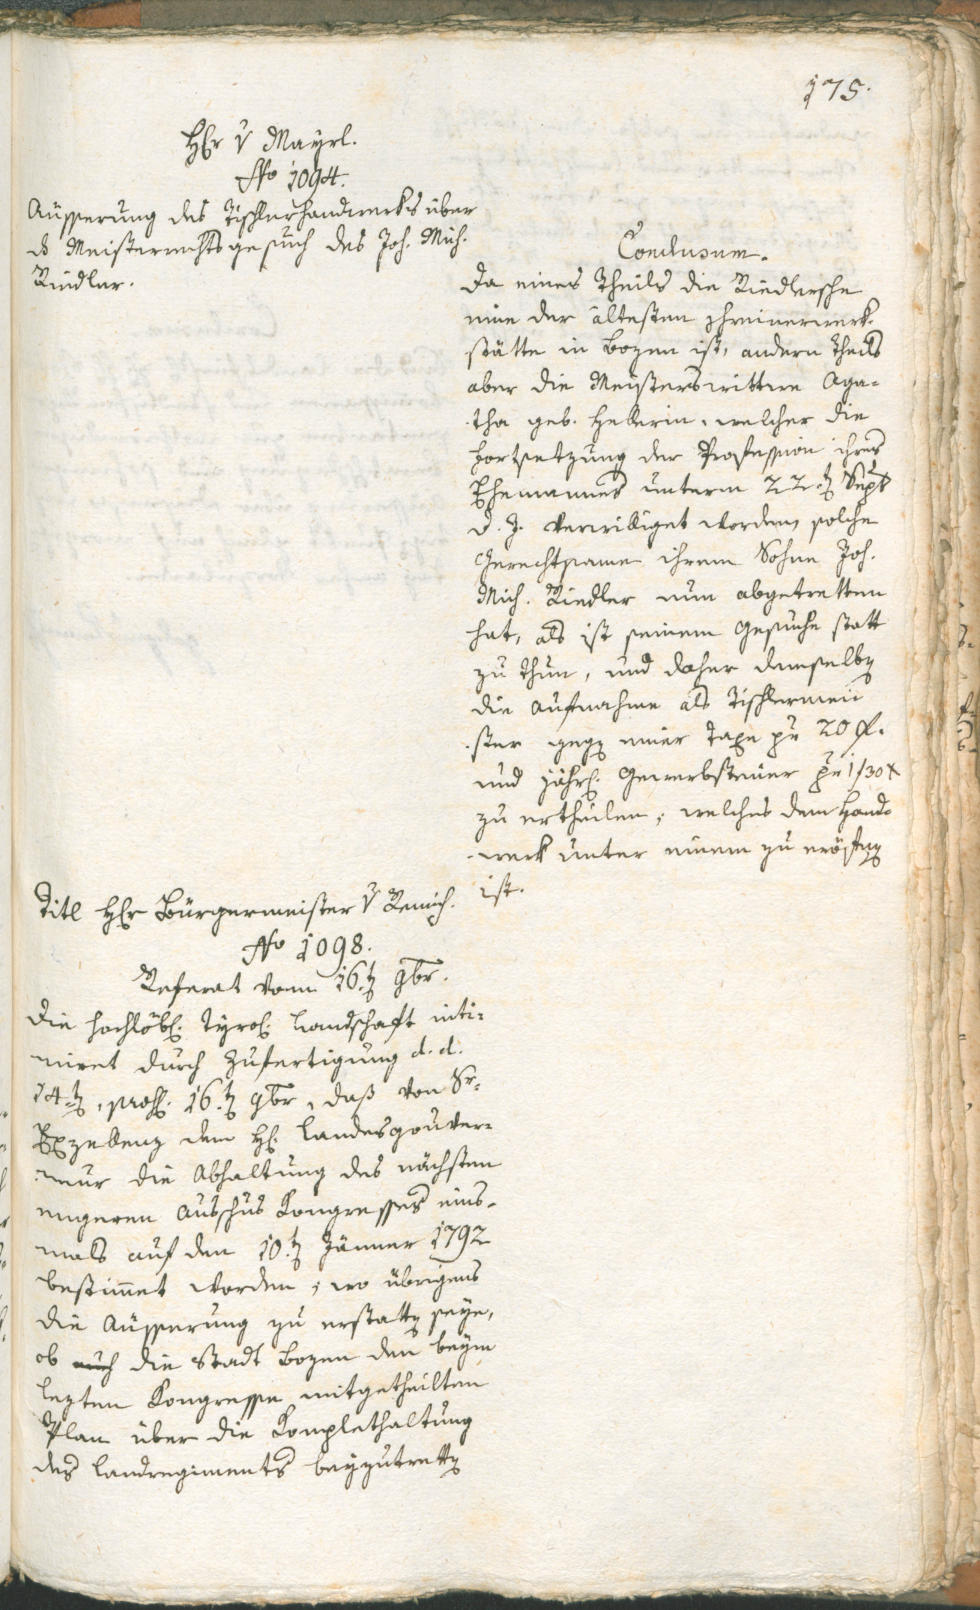 175.
Hℓr v Mayrl.
No 1094.
Äusserung des Tischlerhandwerks über
ds Meisterrechtsgesuch des Joh. Mich.
Riedler.
Conclusum.
Da eines Theils die Riedlersche
eine der ältesten Schreinerwerk-
stätte in Bozen ist, andern Theils
aber die Meisterswittwe Aga-
tha geb. Hellerin, welcher die
Fortsetzung der Profession ihres
Ehemannes unterm 22.t Sept
d. J. verwilliget worden, solche
Gerechtsame ihrem Sohne Joh.
Mich. Riedler nun abgetretten
hat, als ist seinem Gesuche statt
zu thun, und daher demselbẽ
die Aufnahme als Tischlermei
ster gegẽ einer Taxe pr 20 f.
und jährl. Gewerbsteuer pr 1 f 30 x
zu ertheilen, welches dem Hand-
werk unter einem zu eröfnẽ
ist.
Titl Hℓr Bürgermeister v Remich.
No 1098.
Referat vom 16.t 9br.
Die hochlöbl. Tyrol. Landschaft inti-
miret durch Zufertigung d. d.
14.t, præs. 16.t 9br, daß von Sr.
Exzellenz dem H. Landesgouver-
neur die Abhaltung des nächsten
engeren Ausschus Kongresses eins-
mals auf den 10.t Jänner 1792
bestim̄et worden, wo übrigens
die Äusserung zu erstattẽ seye,
ob auch die Stadt Bozen den beym
lezten Kongresse mitgetheilten
Plan über die Komplethaltung
des Landregiments beyzutrettẽ